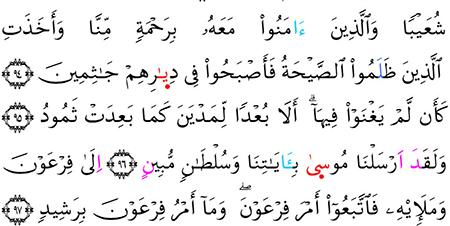 شُعَيْبًا وَٱلَّذِينَ ءَامَنُوا۟ مَعَهُۥ بِرَحْمَةٍ مِّنَّا وَأَخَذَتِ
ٱلَّذِينَ ظَلَمُوا۟ ٱلصَّيْحَةُ فَأَصْبَحُوا۟ فِى دِيَٰرِهِمْ جَٰثِمِينَ ٩٤
كَأَن لَّمْ يَغْنَوْا۟ فِيهَآ ۗ أَلَا بُعْدًا لِّمَدْيَنَ كَمَا بَعِدَتْ ثَمُودُ ٩٥
وَلَقَدَ اَرْسَلْنَا مُوسىٰ بِـَٔايَٰتِنَا وَسُلْطَٰنٍ مُّبِينٍ ٩٦ اِلَىٰ فِرْعَوْنَ
وَمَلَإِيْهِۦ فَٱتَّبَعُوٓا۟ أَمْرَ فِرْعَوْنَ ۖ وَمَآ أَمْرُ فِرْعَوْنَ بِرَشِيدٍ ٩٧